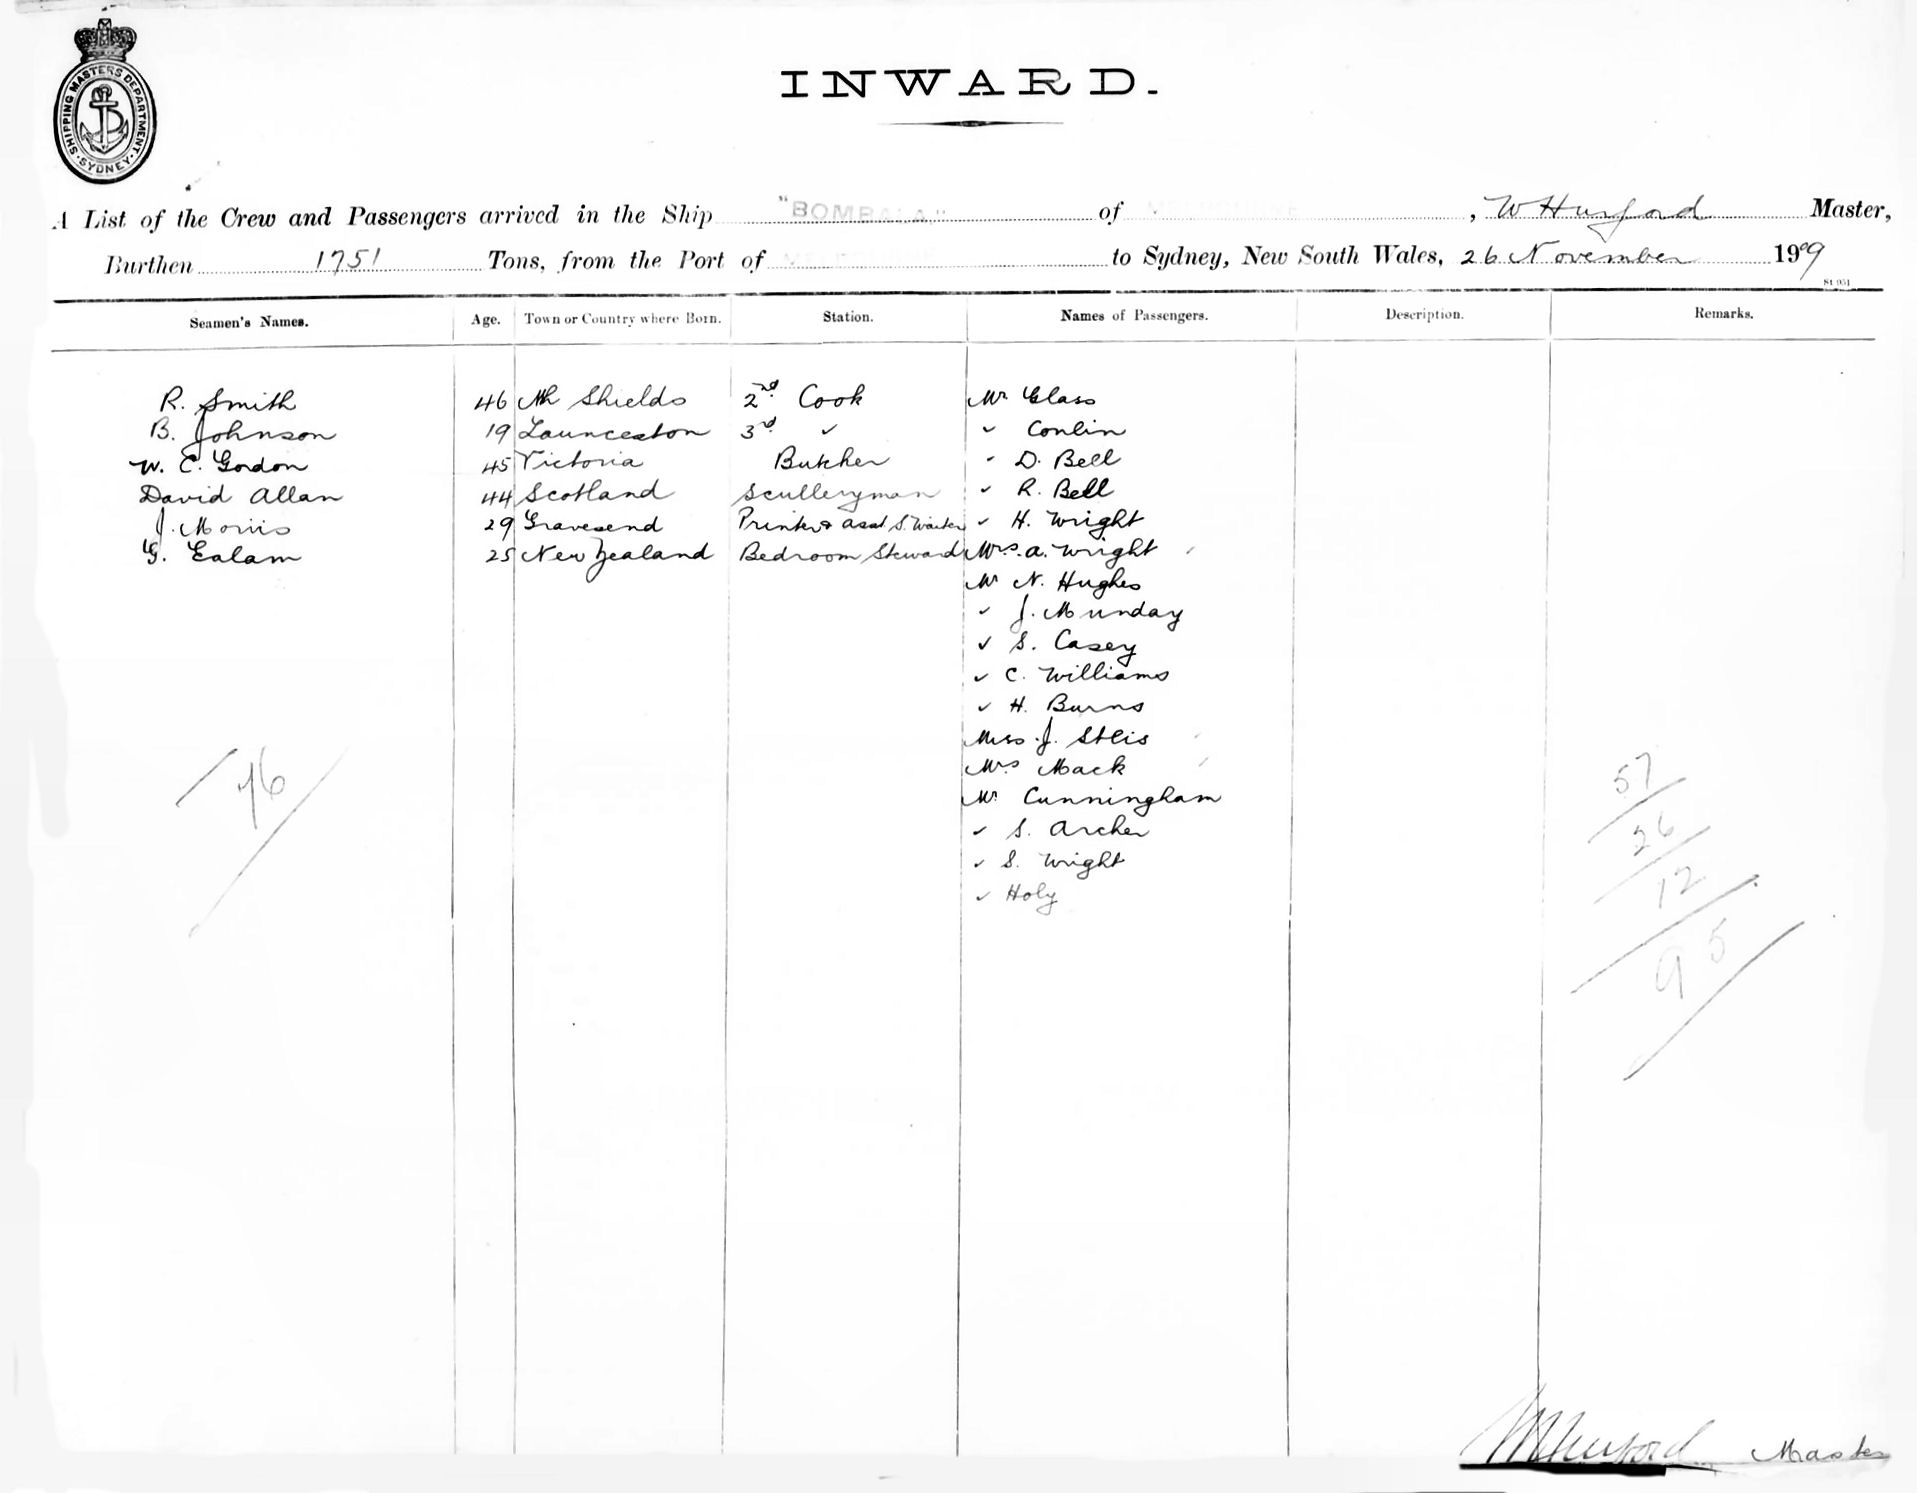 SHIPPING MASTERS DEPARTMENT. SYDNEY
INWARD.
A List of the Crew and Passengers arrived in the Ship "BOMBALA," of MELBOURNE, W Hurford Master,
Burthen 1751 Tons, from the Port of MELBOURNE to Sydney, New South Wales, 26 November 1909
St 951
Seamen's Names. Age. Town or Country where Born. Station. Names of Passengers. Description. Remarks.
R. Smith 46 Nth Shields 2nd Cook Mr Glass
B. Johnson 19 Launceston 3rd ✓ ✓ Conlin
W. C. Gordon 45 Victoria Butcher ✓ D. Bell
David Allan 44 Scotland Sculleryman ✓ R. Bell
J. Morris 29 Gravesend Printer & Asst S. Waiter ✓ H. Wright
G. Ealam 25 New Zealand Bedroom Steward Mrs. A. Wright
Mr N. Hughes
✓ J. Munday
✓ S. Casey
✓ C. Williams
✓ H. Burns
Miss J. Stlis
Mrs Mack
Mr Cunningham
✓ S. Archer
✓ S. Wright
✓ Holy
76
57
26
12
95
W Hurford Master